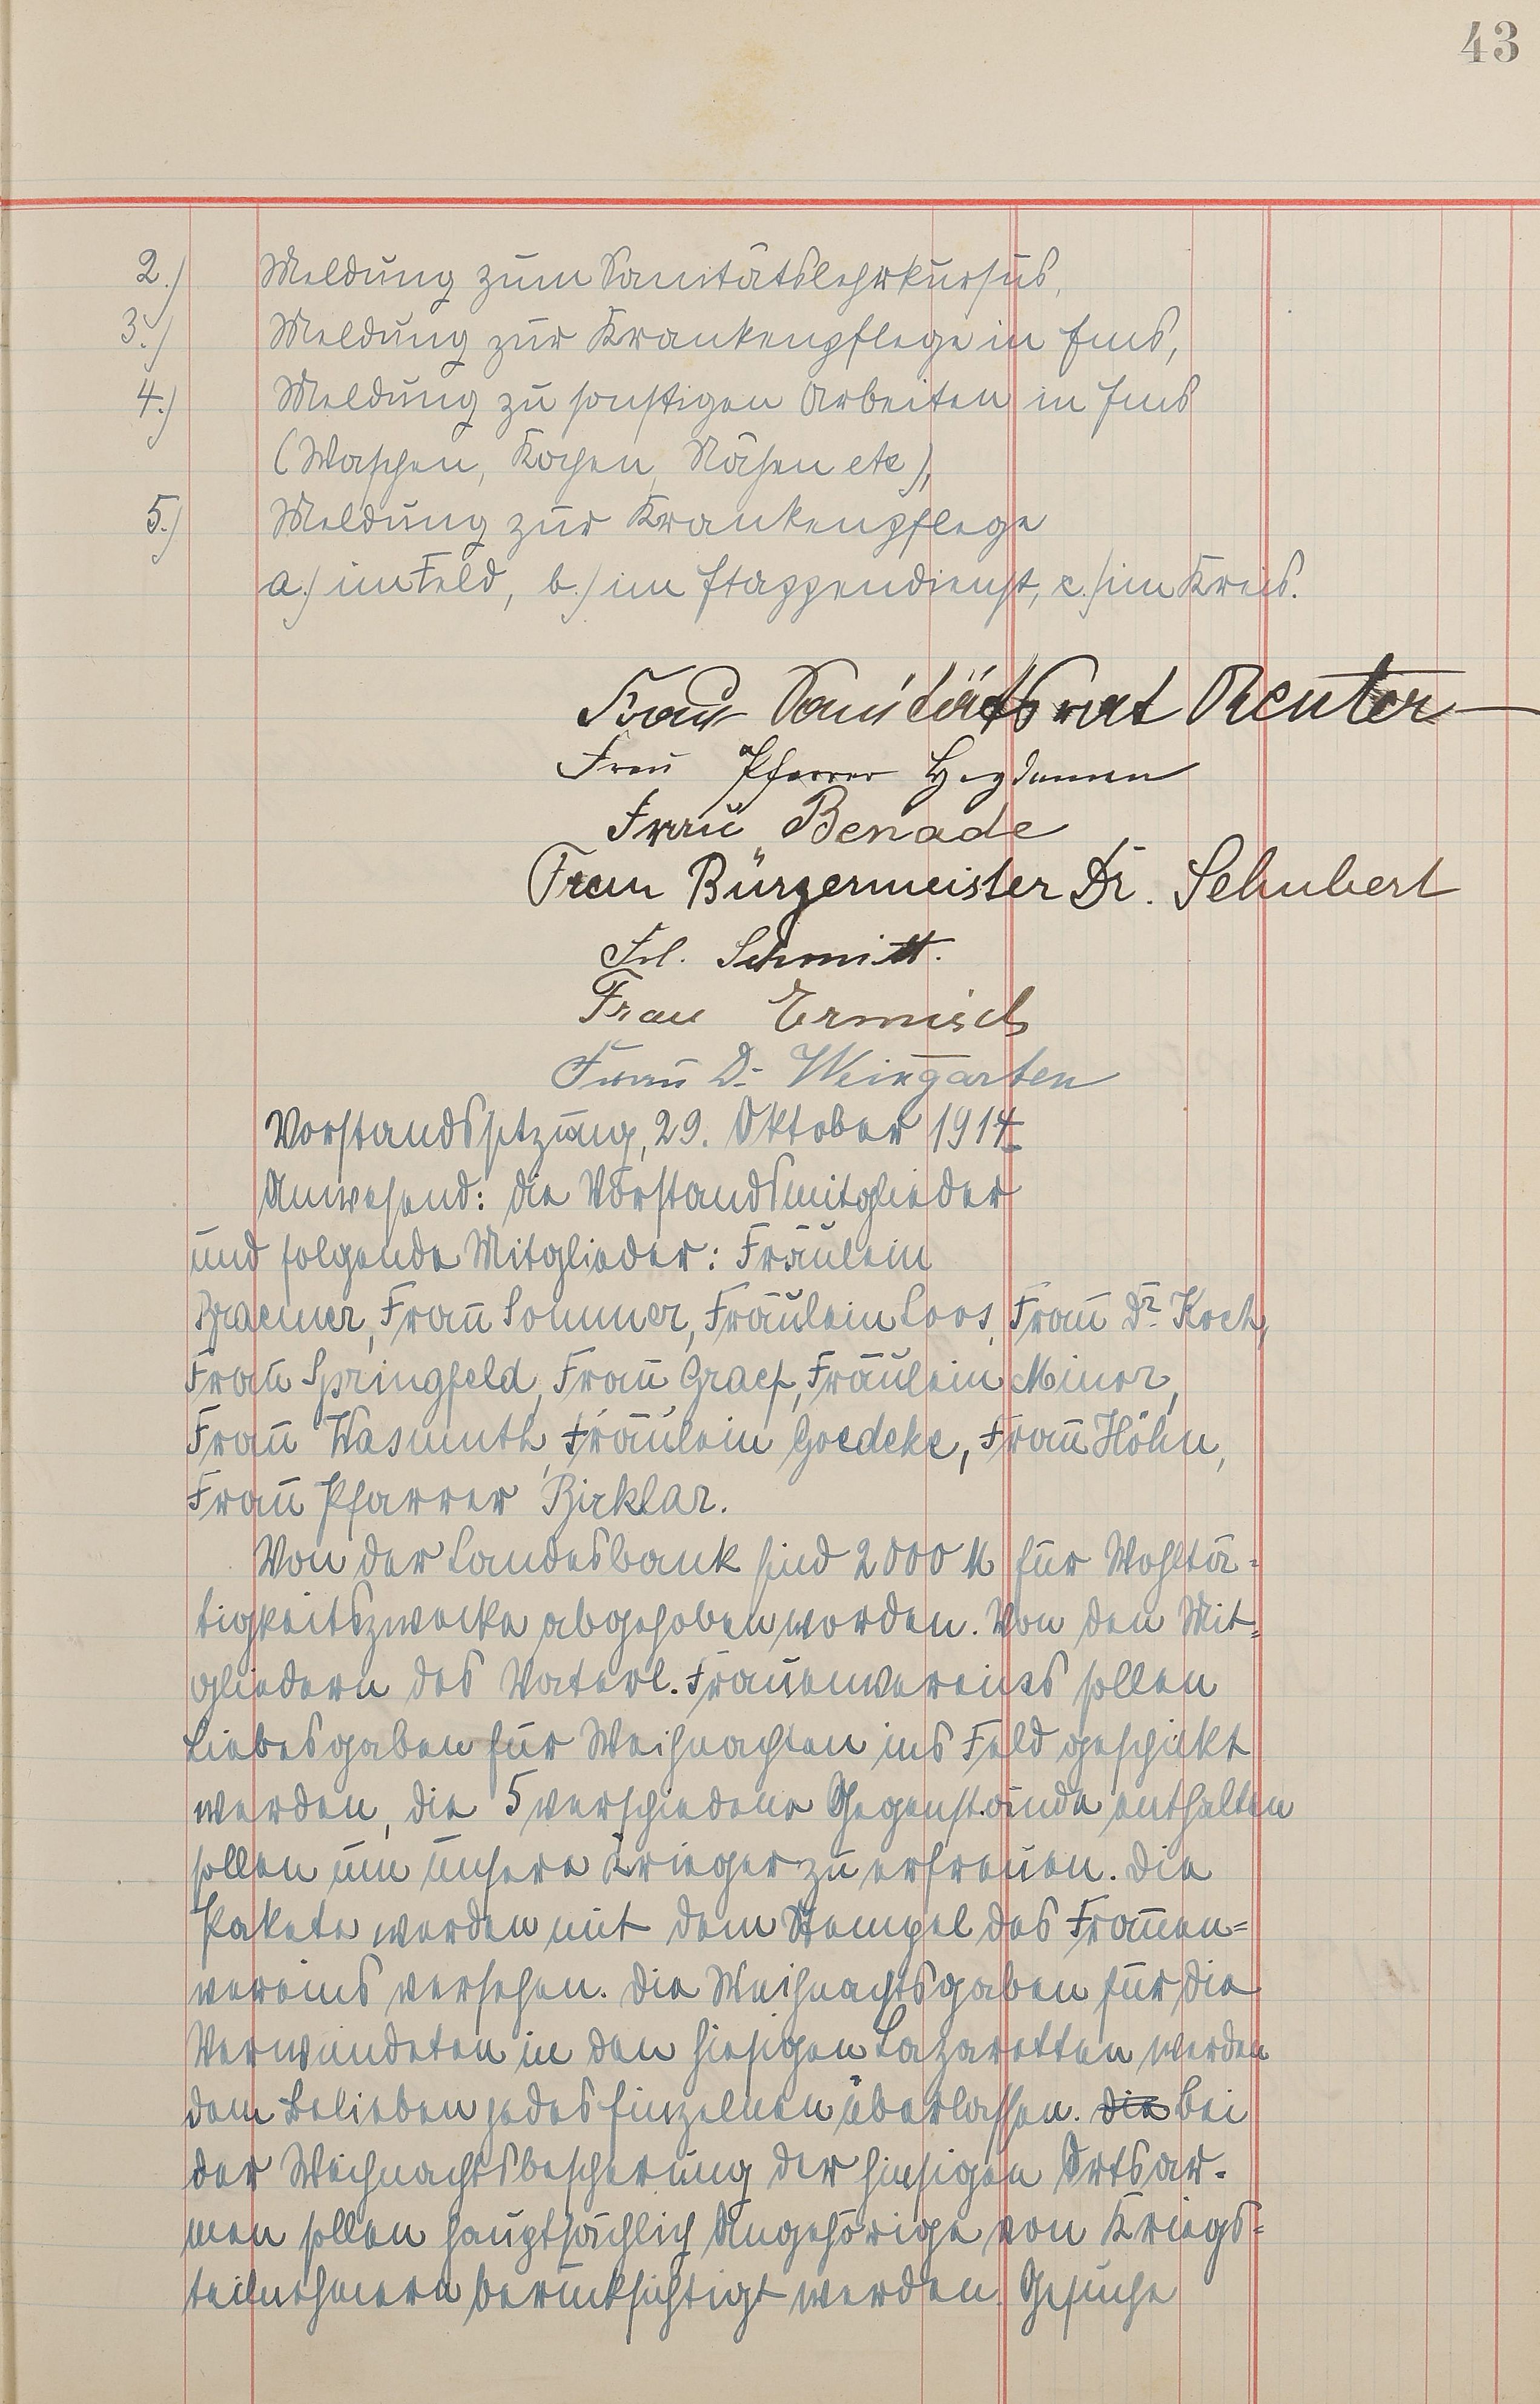 43
2.) Meldung zum Sanitätslehrkursus,
3.) Meldung zur Krankenpflege in Ems,
4.) Meldung zu sonstigen Arbeiten in Ems
(Waschen, Kochen, Nähen etc),
5.) Meldung zur Krankenpflege
a.) im Feld, b.) im Etappendienst, c.) im Kreis.
Frau Sanitätsrat Reuter
Frau Pfarrer Heydemann
Frau Benade
Frau Bürgermeister Dr. Schubert
Frl. Schmitt.
Frau Ermisch
Frau Dr Weingarten
Vorstandssitzung, 29. Oktober 1914.
Anwesend: die Vorstandsmitglieder
und folgende Mitglieder: Fräulein
Braemer, Frau Sommer, Fräulein Loos, Frau Dr. Koch,
Frau Springfeld, Frau Graef, Fräulein Minor,
Frau Wasmuth, Fräulein Goedeke, Frau Höhn,
Frau Pfarrer Birklar.
Von der Landesbank sind 2000 M für Wohltä=
tigkeitszwecke abgehoben worden. Von den Mit=
gliedern des Vaterl. Frauenvereins sollen
Liebesgaben für Weihnachten ins Feld geschickt
werden, die 5 verschiedene Gegenstände enthalten
sollen um unsere Krieger zu erfreuen. Die
Pakete werden mit dem Stempel des Frauen=
vereins versehen. Die Weihnachtsgaben für die
Verwundeten in den hiesigen Lazaretten werden
dem Belieben jedes Einzelnen überlassen. die Bei
der Weihnachtsbescherung der hiesigen Ortsar-
men sollen hauptsächlich Angehörige von Kriegs=
teilnehmern berücksichtigt werden. Gesuche